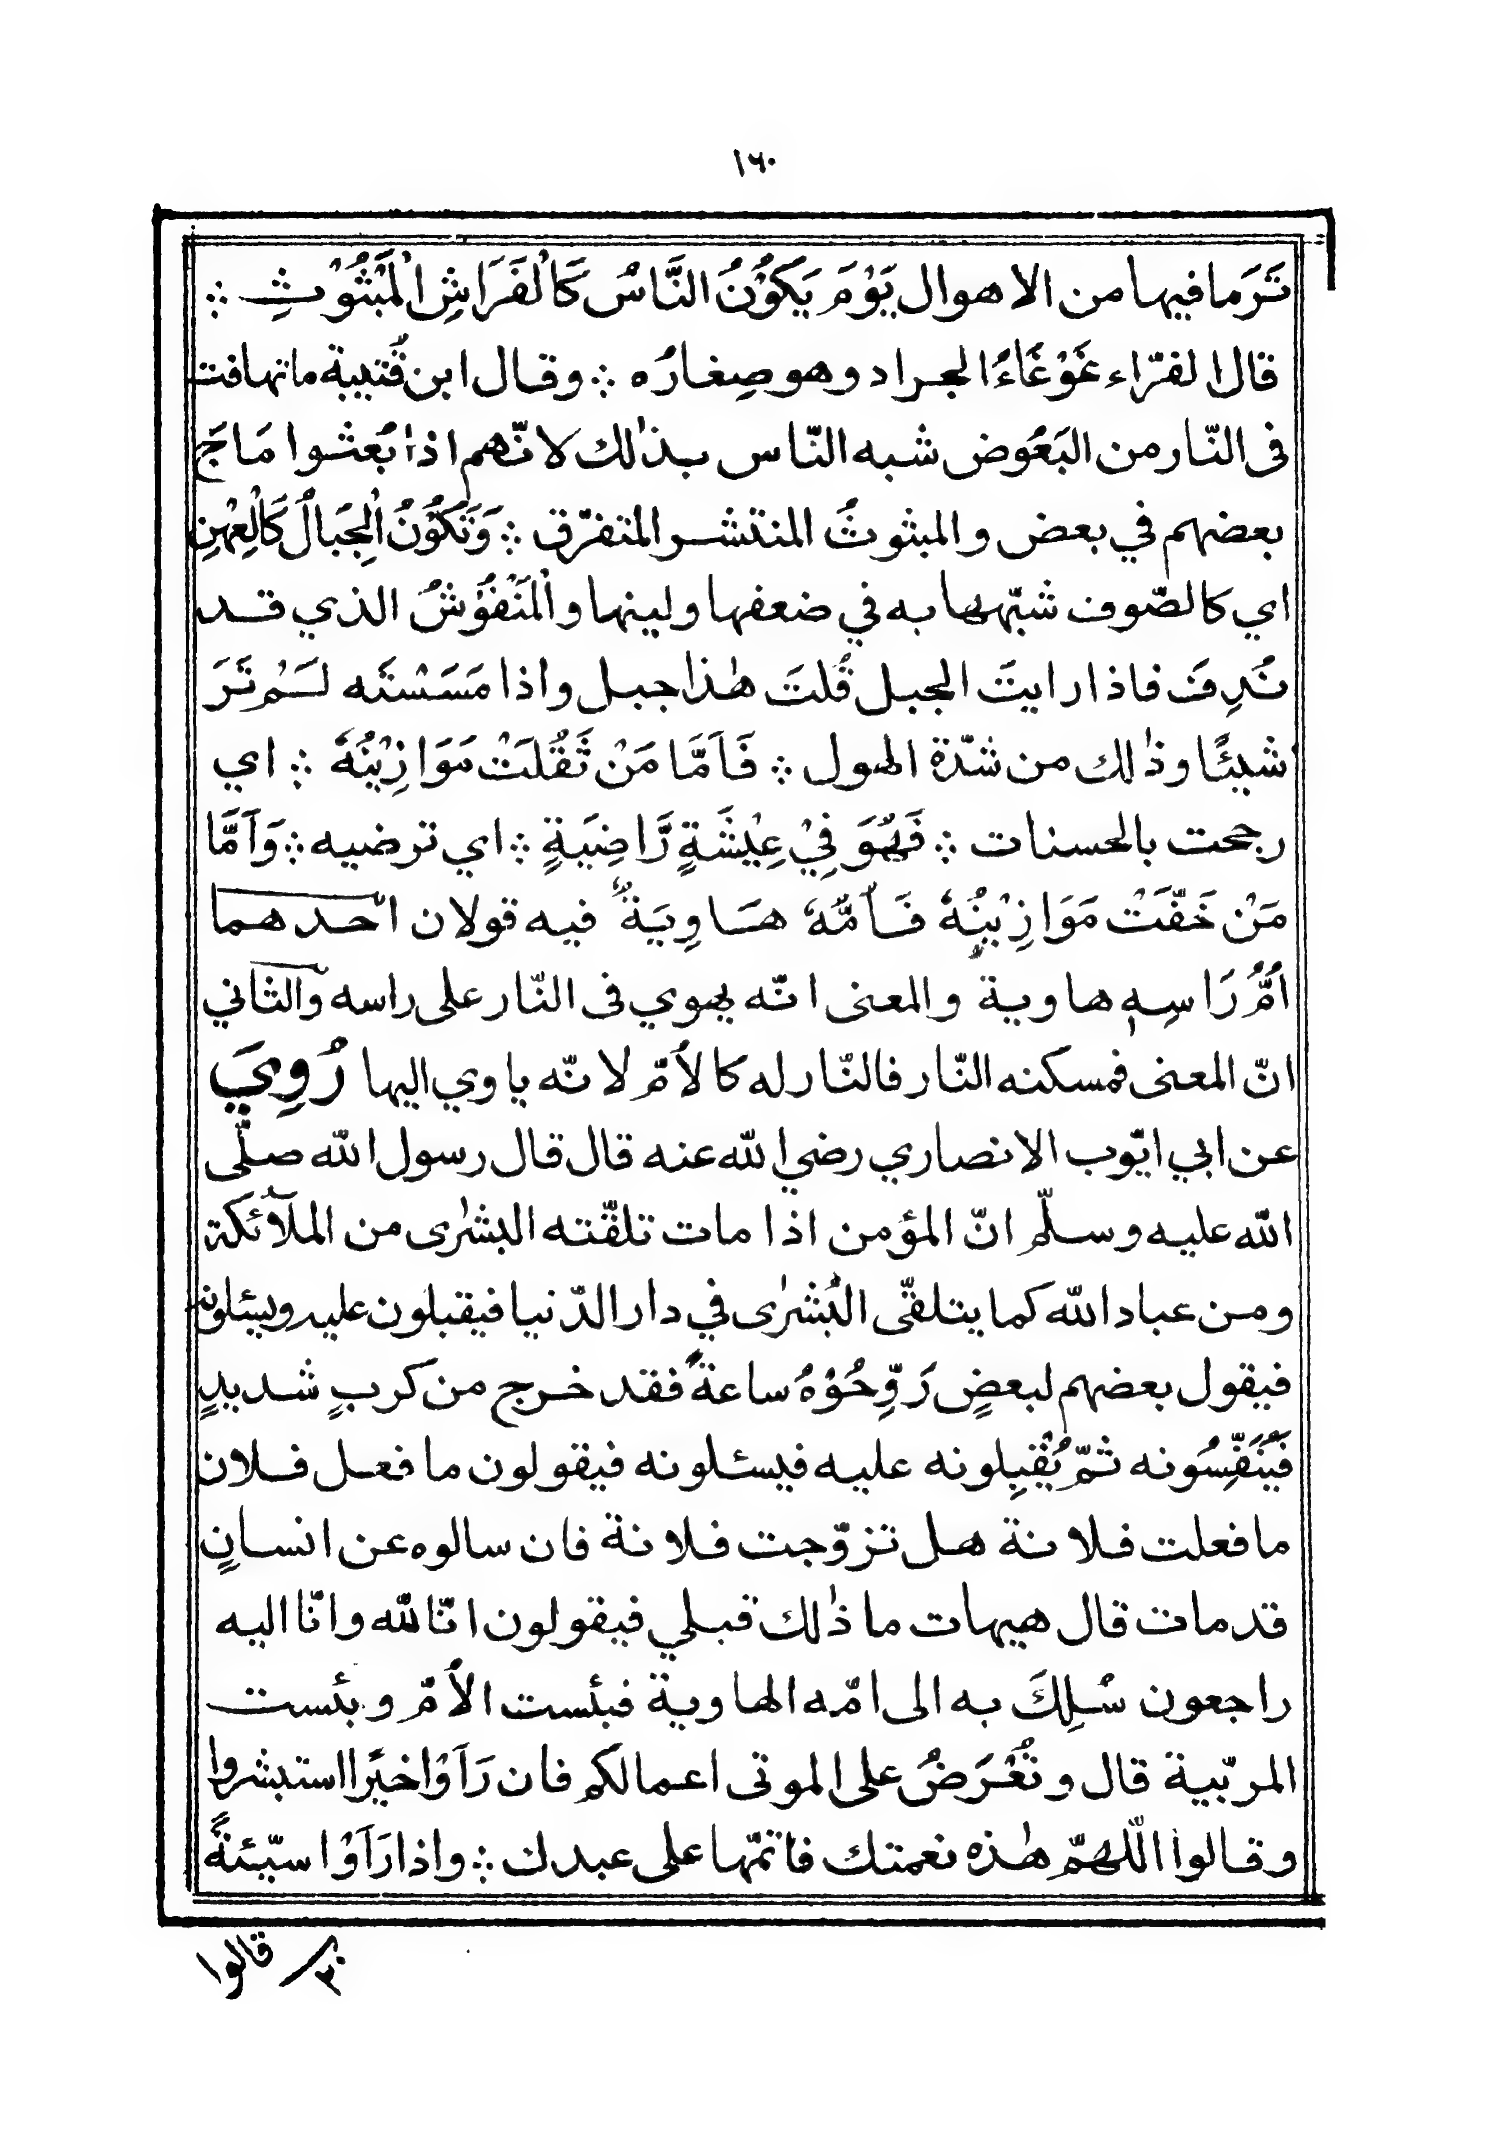 ١٦٠
تَرَ مافيها من الاهوال يَوْمَ يَكُوْنُ النَّاسُ كَالْفَرَاشِ الْمَبْثُوْثِ ؞
قال الفرّاء غَوْغَاءُ الجراد وهو صِغارُه ؞ وقال ابن قُتيبة ماتهافت
فى النّار من البَعُوض شبه النّاس بذٰلك لانّهم اذا بُعثوا مَاجَ
بعضهم في بعض والمبثوثُ المنتشر المتفرّق ؞ وَتَكُوْنُ الْجِبَالُ كَالْعِهْنِ
اي كالصّوف شبّهها به في ضعفها ولينها والْمَنْفُوْشُ الذي قد
نُدِفَ فاذا رايتَ الجبل قُلتَ هٰذا جبل واذا مَسَسْتَه لَمْ تَرَ
شيئًا وذٰلك من شدّة الهول ؞ فَاَمَّا مَنْ ثَقُلَتْ مَوَازِيْنُهٗ ؞ اي
رجحت بالحسنات ؞ فَهُوَ فِيْ عِيْشَةٍ رَّاضِيَةٍ ؞ اي ترضيه ؞ وَاَمَّا
مَنْ خَفَّتْ مَوَازِيْنُهٗ فَاُمُّهٗ هَاوِيَةٌ فيه قولان احدهما
اُمُّ رَاسِهٖ هاوية والمعنى انّه يهوي فى النّار على راسه والثاني
انّ المعنى فمسكنه النّار فالنّار له كالاُمّ لانّه ياوي اليها رُوِيَ
عن ابي ايّوب الانصاري رضي الله عنه قال قال رسول الله صلّى
الله عليه وسلّم انّ المؤمن اذا مات تلقّته البشرٰى من الملآئكة
ومن عباد الله كما يتلقّى البُشرٰى في دار الدّنيا فيقبلون عليه ويسئلونه
فيقول بعضهم لبعضٍ رَوِّحُوْهُ ساعةً فقد خرج من كربٍ شديدٍ
فَيُنَفِّسُونه ثمّ يُقْبِلونه عليه فيسئلونه فيقولون ما فعل فلان
مافعلت فلانة هل تزوّجت فلانة فان سالوه عن انسانٍ
قدمات قال هيهات ما ذٰلك قبلي فيقولون انّا لله وانّا اليه
راجعون سُلِكَ به الى امّه الهاوية فبئست الاُمّ وبئست
المربّية قال وتُعْرَضُ على الموتى اعمالكم فان رَاَوْا خيرًا استبشروا
وقالوا اللّهمّ هٰذه نعمتك فاتمّها على عبدك ؞ واذا رَاَوْا سيّئةً
٣٠ قالوا